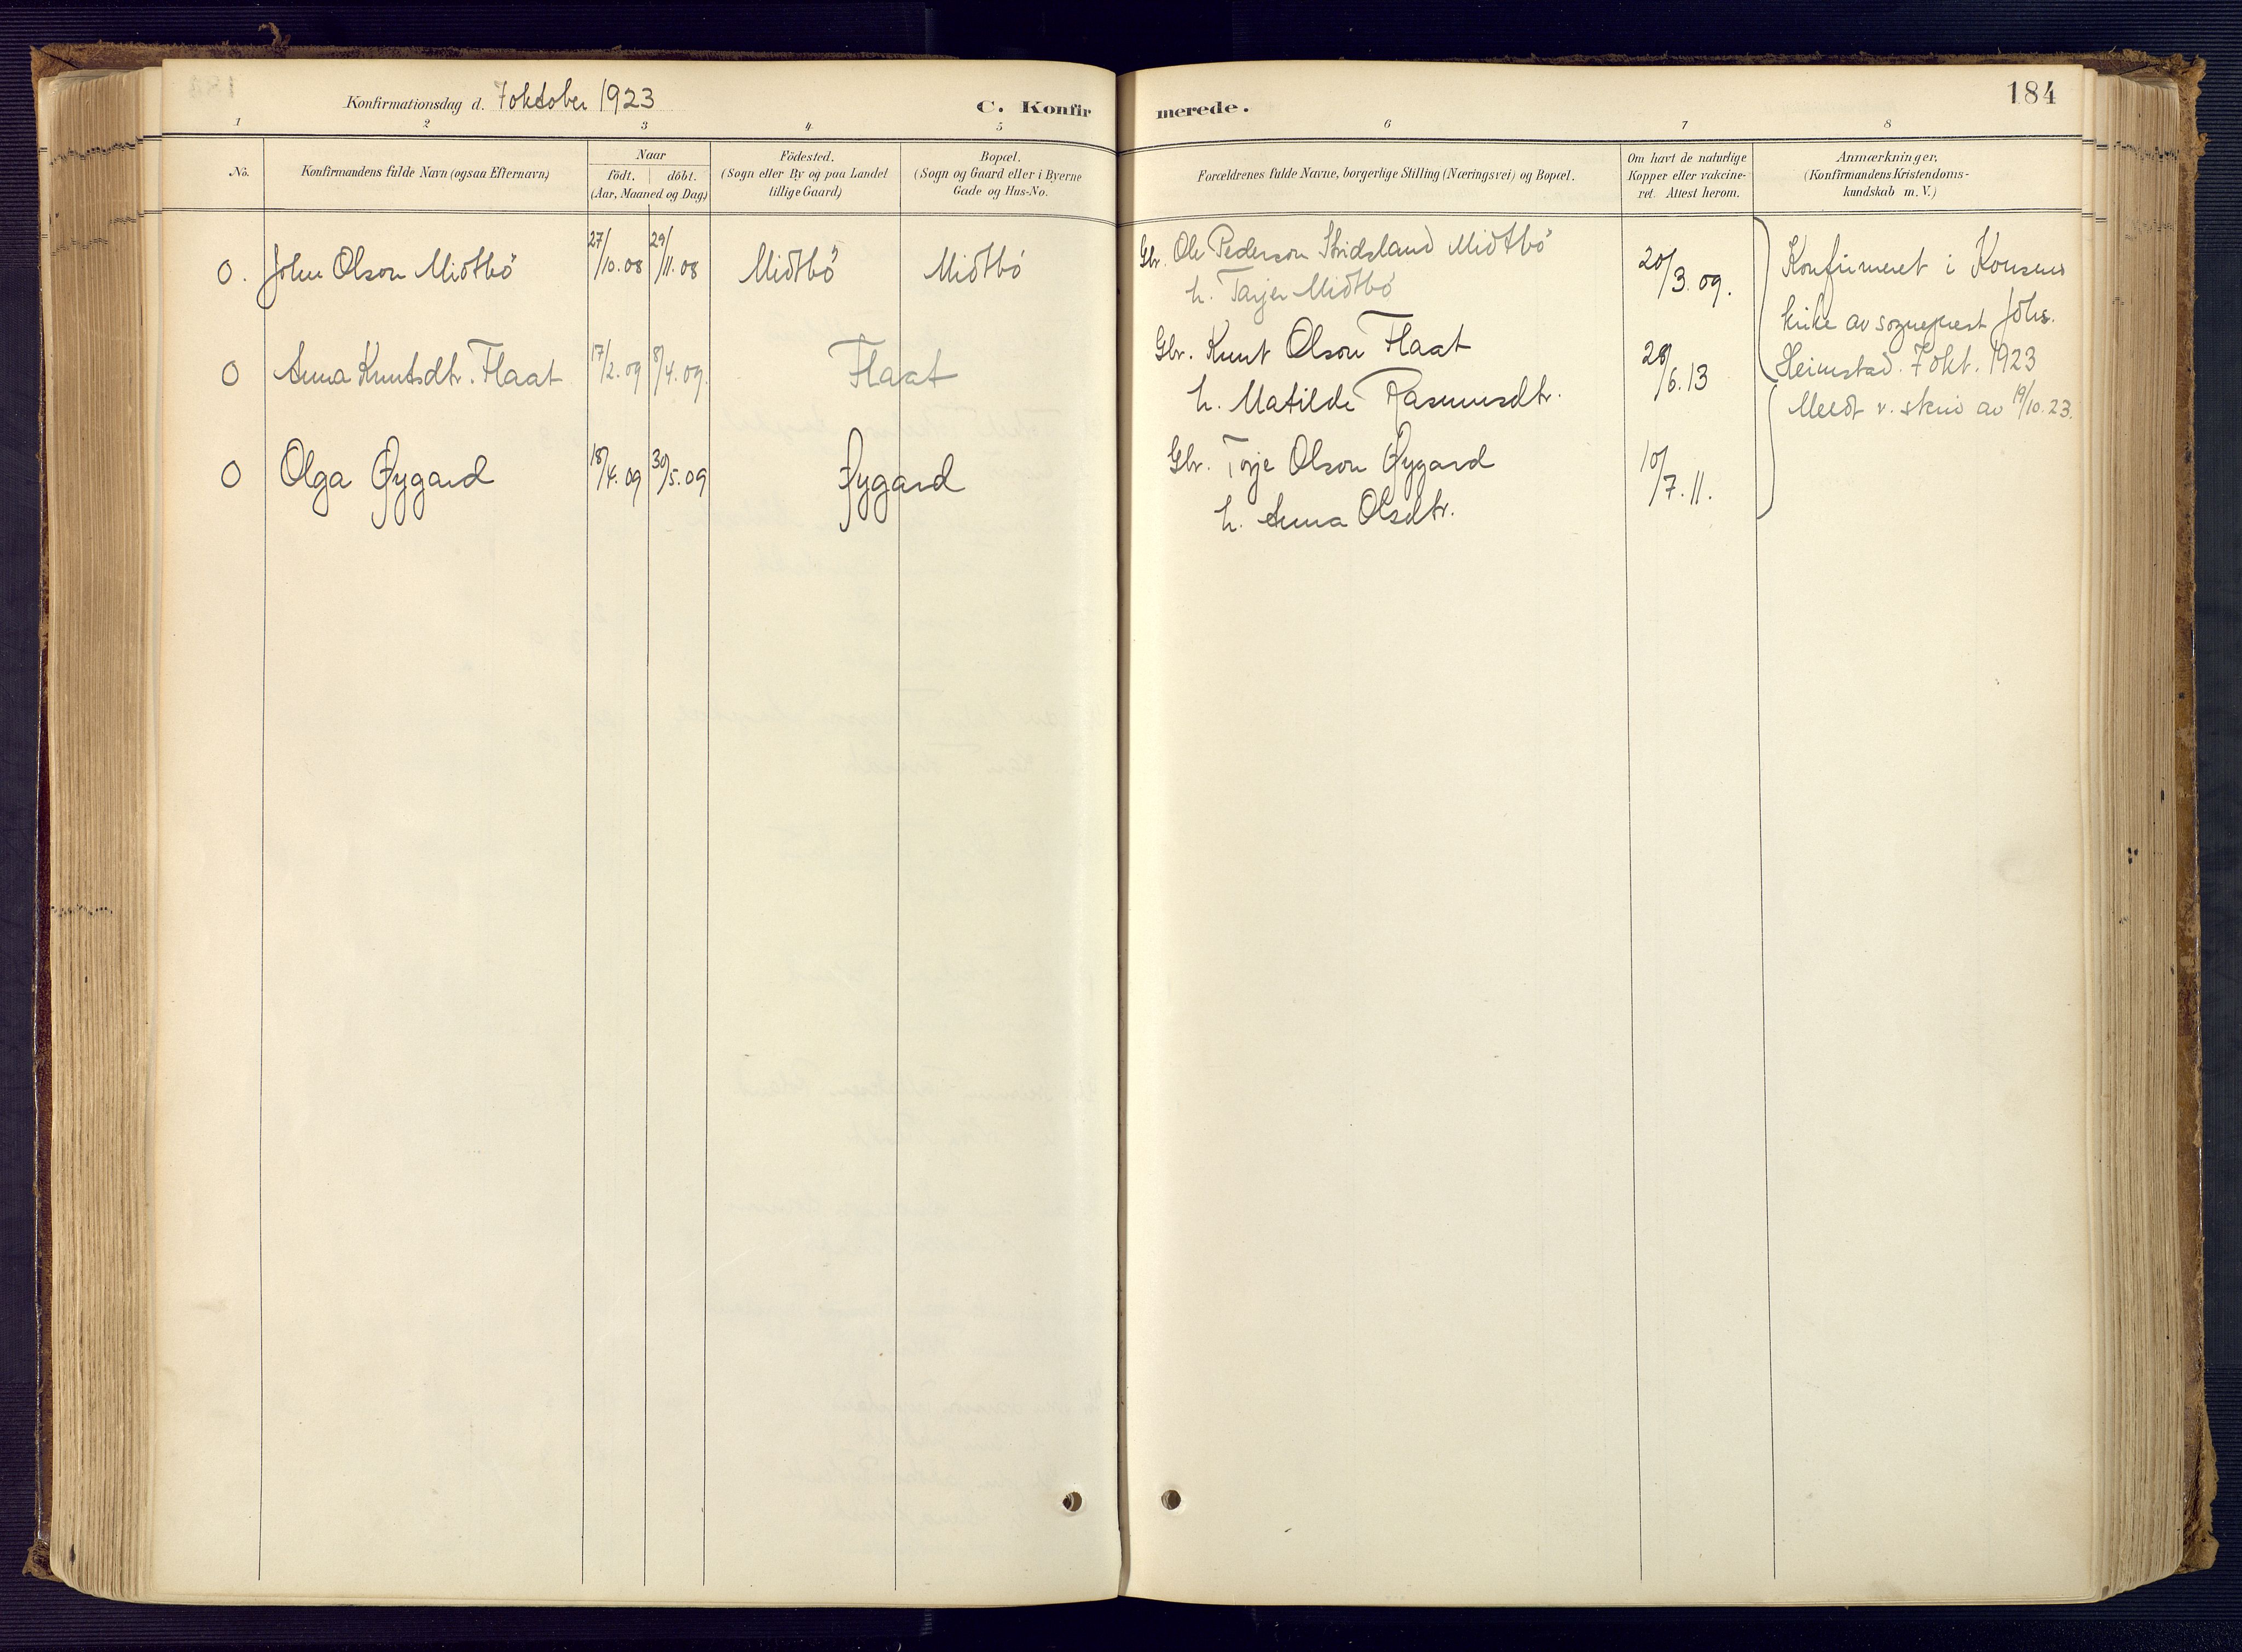 184
Konfirmationsdag d. 7 oktober 1923
C. Konfirmerede.
1 2 3 4 5 6 7 8
No.
Konfirmandens fulde Navn (ogsaa Efternavn)
Naar
födt. döbt.
(Aar, Maaned og Dag)
Födested.
(Sogn eller By og paa Landet
tillige Gaard)
Bopæl.
(Sogn og Gaard eller i Byerne
Gade og Hus-No.
Forældrenes fulde Navne, borgerlige Stilling (Næringsvei) og Bopæl.
Om havt de naturlige
Kopper eller vakcine-
ret. Attest herom.
Anmærkninger.
(Konfirmandens Kristendoms-
kundskab m. V.)
0. John Olson Midtbö 27/10.08 29/11.08 Midtbö Midtbö Gbr. Ole Pederson Skridsland Midtbö 20/3.09.
h. Tarjer Midtbö
0 Anna Knutsdtr. Flaat 17/2.09 8/4.09. Flaat Gbr. Knut Olson Flaat /6.13
h. Matilde Rasmusdtr.
0 Olga Øygard 18/4.09 30/5.09 Øygard Gbr. Torje Olson Øygard 10/7.11.
h. Anna Olsdtr.
Konfirmeret i
kirke av sogneprest Johs.
Heimstad. 7 okt. 1923
Meldt v. skriv av 19/10.23.